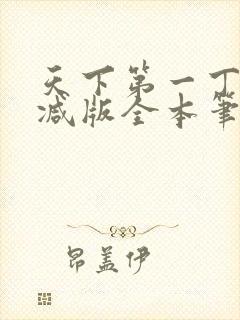 天下第一丁
减版全本笔
昂盖伊